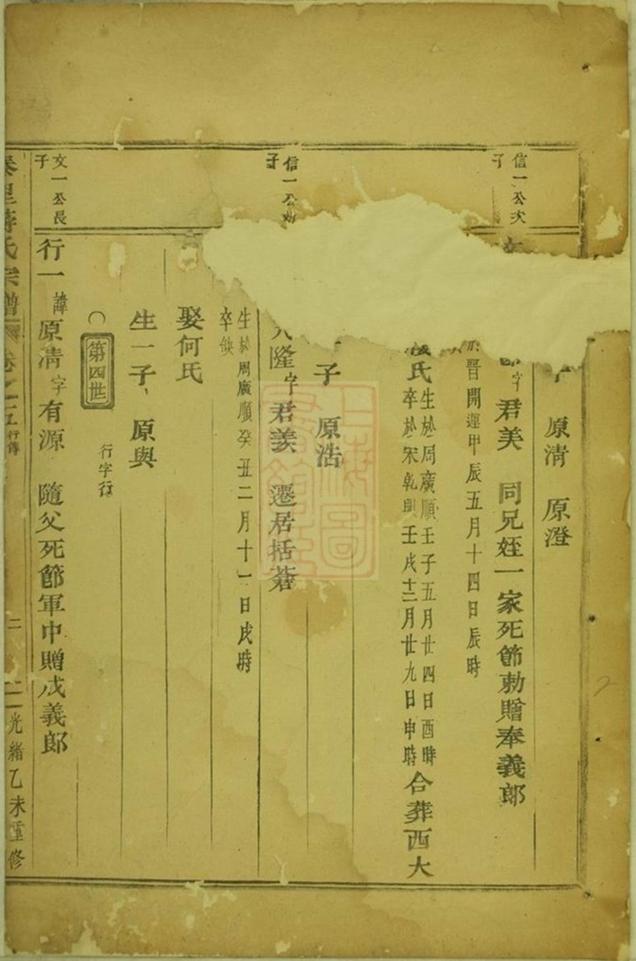 信一公次子
原淸 原澄
字君美 同兄姪一家死節勅贈奉義郎
晋開運甲辰五月十四日辰時
氏 生於周廣順壬子五月廿四日酉時
卒於宋乾興壬戌十二月廿九日申時 合葬西大
子 原浩
信一公
子
隆字君羡 遷居括蒼
生於周廣順癸丑二月十一日戌時
卒缺
娶何氏
生一子 原與
第四世
行字行
文一公長子
行一 諱原淸字有源 隨父死節軍中贈成義郎
氏宗譜 卷之五 行傳
二
光緒乙未重修